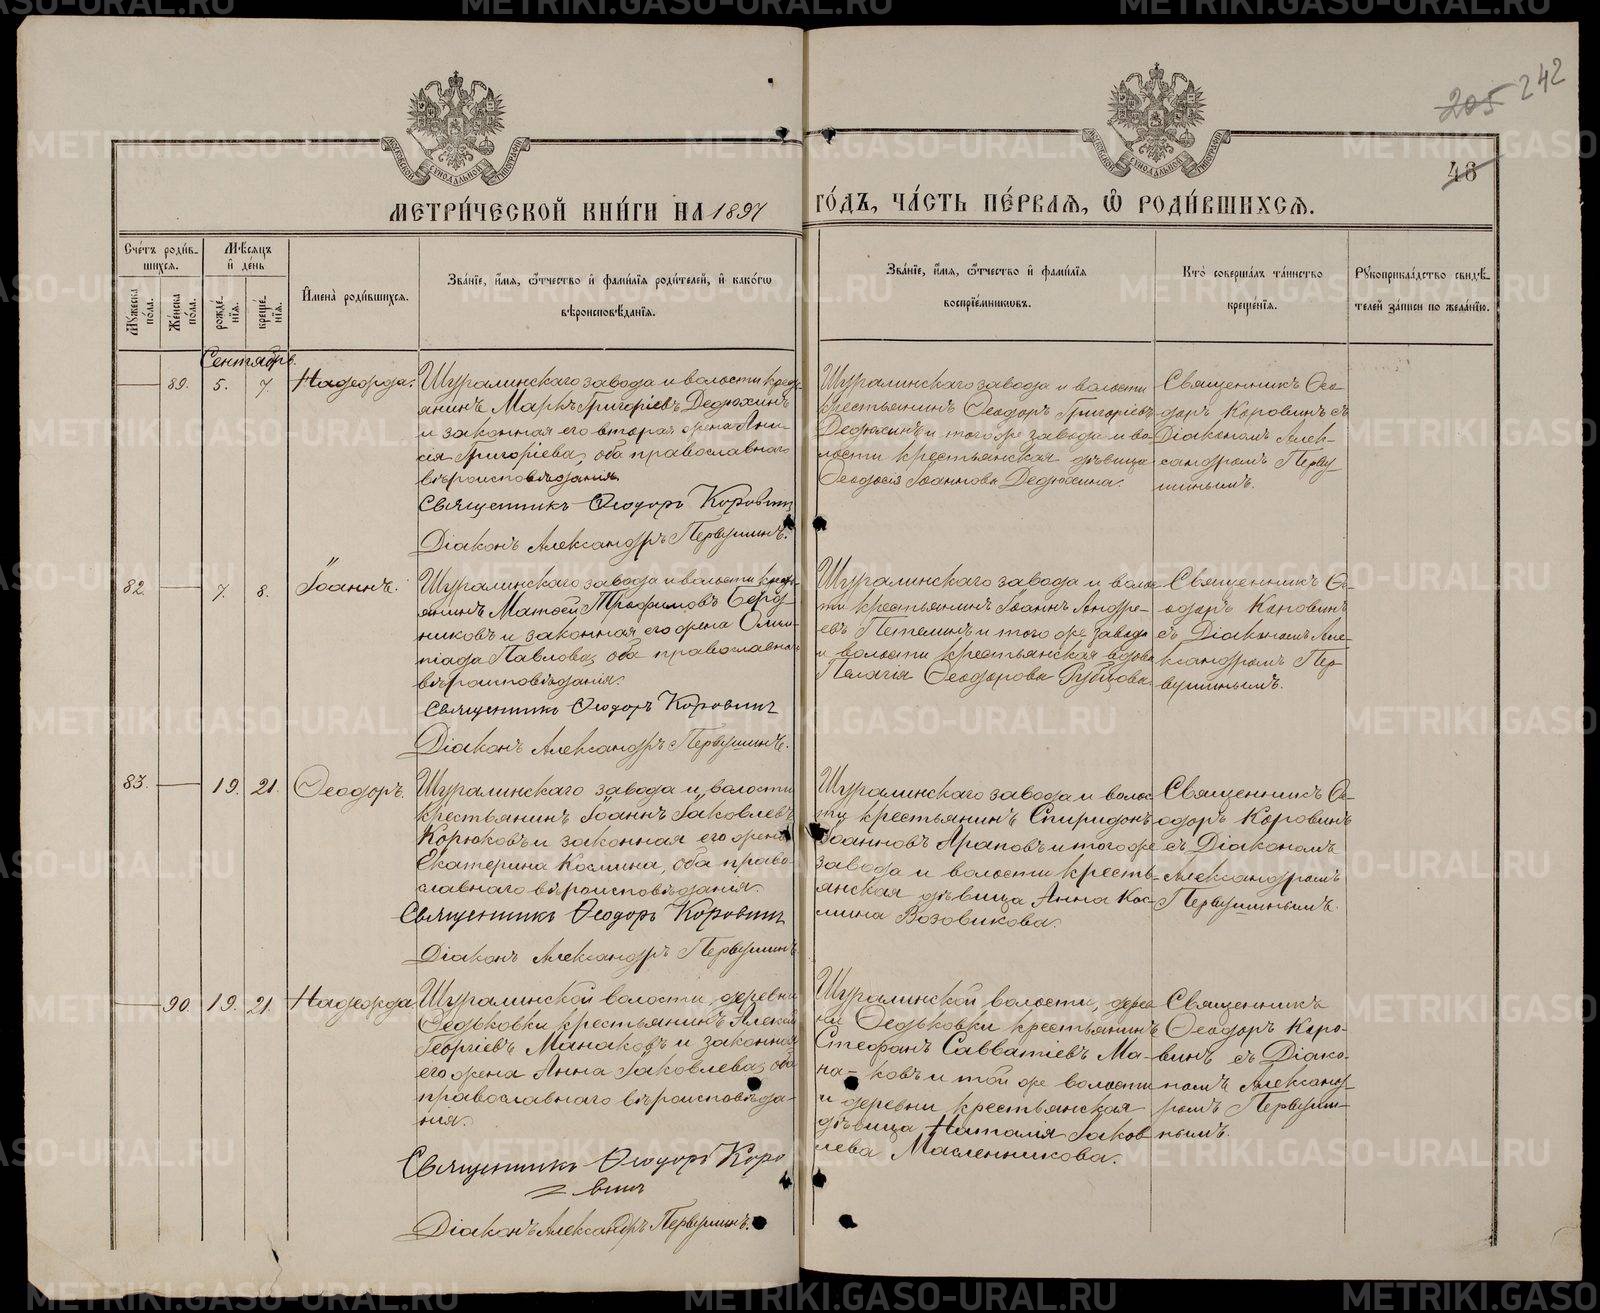 205 242
48
МЕТРИ́ЧЕСКОЙ КНИ́ГИ НА 1897 ГО́ДЪ, ЧА́СТЬ ПЕ́РВАѦ, Ѡ҆ РОДИ́ВШИХСѦ.
Сче́тъ роди́в-
шихся.
Мѣ́сяцъ
и҆ де́нь
Мꙋ́жеска по́ла.
Же́нска по́ла.
рожде́-
нїѧ.
креще́-
нїѧ.
И҆мена̀ роди́вшихсѧ.
Зва́нїе, и҆́мѧ, ѻ҆́тчество и҆ фами́лїѧ роди́телей, и҆ како́гѡ
вѣроисповѣ́данїѧ.
Зва́нїе, и҆́мѧ, ѻ҆́тчество и҆ фами́лїѧ
воспрїе́мниковъ.
Кто̀ соверша́лъ та́инство
креще́нїѧ.
Рꙋкоприкла́дство свидѣ́-
телей за́писи по жела́нїю.
Сентябрь.
89. 5. 7. Надежда.
Шуралинскаго завода и волости кресть-
янинъ Маркъ Григоріевъ Дедюхинъ
и законная его вторая жена Ани-
сія Григоріева, оба православнаго
вѣроисповѣданія.
Священникъ Ѳеодоръ Коровинъ
Діаконъ Александръ Первушинъ.
Шуралинскаго завода и волости
крестьянинъ Ѳеодоръ Григоріевъ
Дедюхинъ и того же завода и во-
лости крестьянская дѣвица
Ѳеодосія Іоаннова Дедюхина.
Священникъ Ѳео-
доръ Коровинъ съ
Діакономъ Алек-
сандромъ Перву-
шинымъ.
82. 7. 8. Іоаннъ.
Шуралинскаго завода и волости кресть-
янинъ Матѳей Трофимовъ Серед-
никовъ и законная его жена Олим-
піада Павлова, оба православнаго
вѣроисповѣданія.
Священникъ Ѳеодоръ Коровинъ
Діаконъ Александръ Первушинъ.
Шуралинскаго завода и волос-
ти крестьянинъ Іоаннъ Андре-
евъ Петелинъ и того же завода
и волости крестьянская вдова
Пелагія Ѳеодорова Рубцова.
Священникъ Ѳе-
одоръ Коровинъ
съ Діакономъ Але-
ксандромъ Пер-
вушинымъ.
83. 19. 21. Ѳеодоръ.
Шуралинскаго завода и волости
крестьянинъ Іоаннъ Іаковлевъ
Корюковъ и законная его жена
Екатерина Космина, оба право-
славнаго вѣроисповѣданія.
Священникъ Ѳеодоръ Коровинъ
Діаконъ Александръ Первушинъ
Шуралинскаго завода и волос-
ти крестьянинъ Спиридонъ
Іоанновъ Араповъ и того же
завода и волости кресть-
янская дѣвица Анна Кос-
мина Возовикова.
Священникъ Ѳе-
одоръ Коровинъ
съ Діакономъ
Александромъ
Первушинымъ.
90. 19. 21. Надежда
Шуралинской волости, деревни
Ѳедьковки крестьянинъ Алексѣй
Георгіевъ Манаковъ и законная
его жена Анна Іаковлева, оба
православнаго вѣроисповѣда-
нія.
Священникъ Ѳеодоръ Коро
винъ
Діаконъ Александръ Первушинъ.
Шуралинской волости, дерев-
ни Ѳедьковки крестьянинъ
Стефанъ Савватіевъ Ма-
на-ковъ и той же волости
и деревни крестьянская
дѣвица Наталія Іаков
лева Масленникова.
Священникъ
Ѳеодоръ Коро-
винъ съ Діако-
номъ Александ-
ромъ Первуши-
нымъ.
METRIKI.GASO-URAL.RU